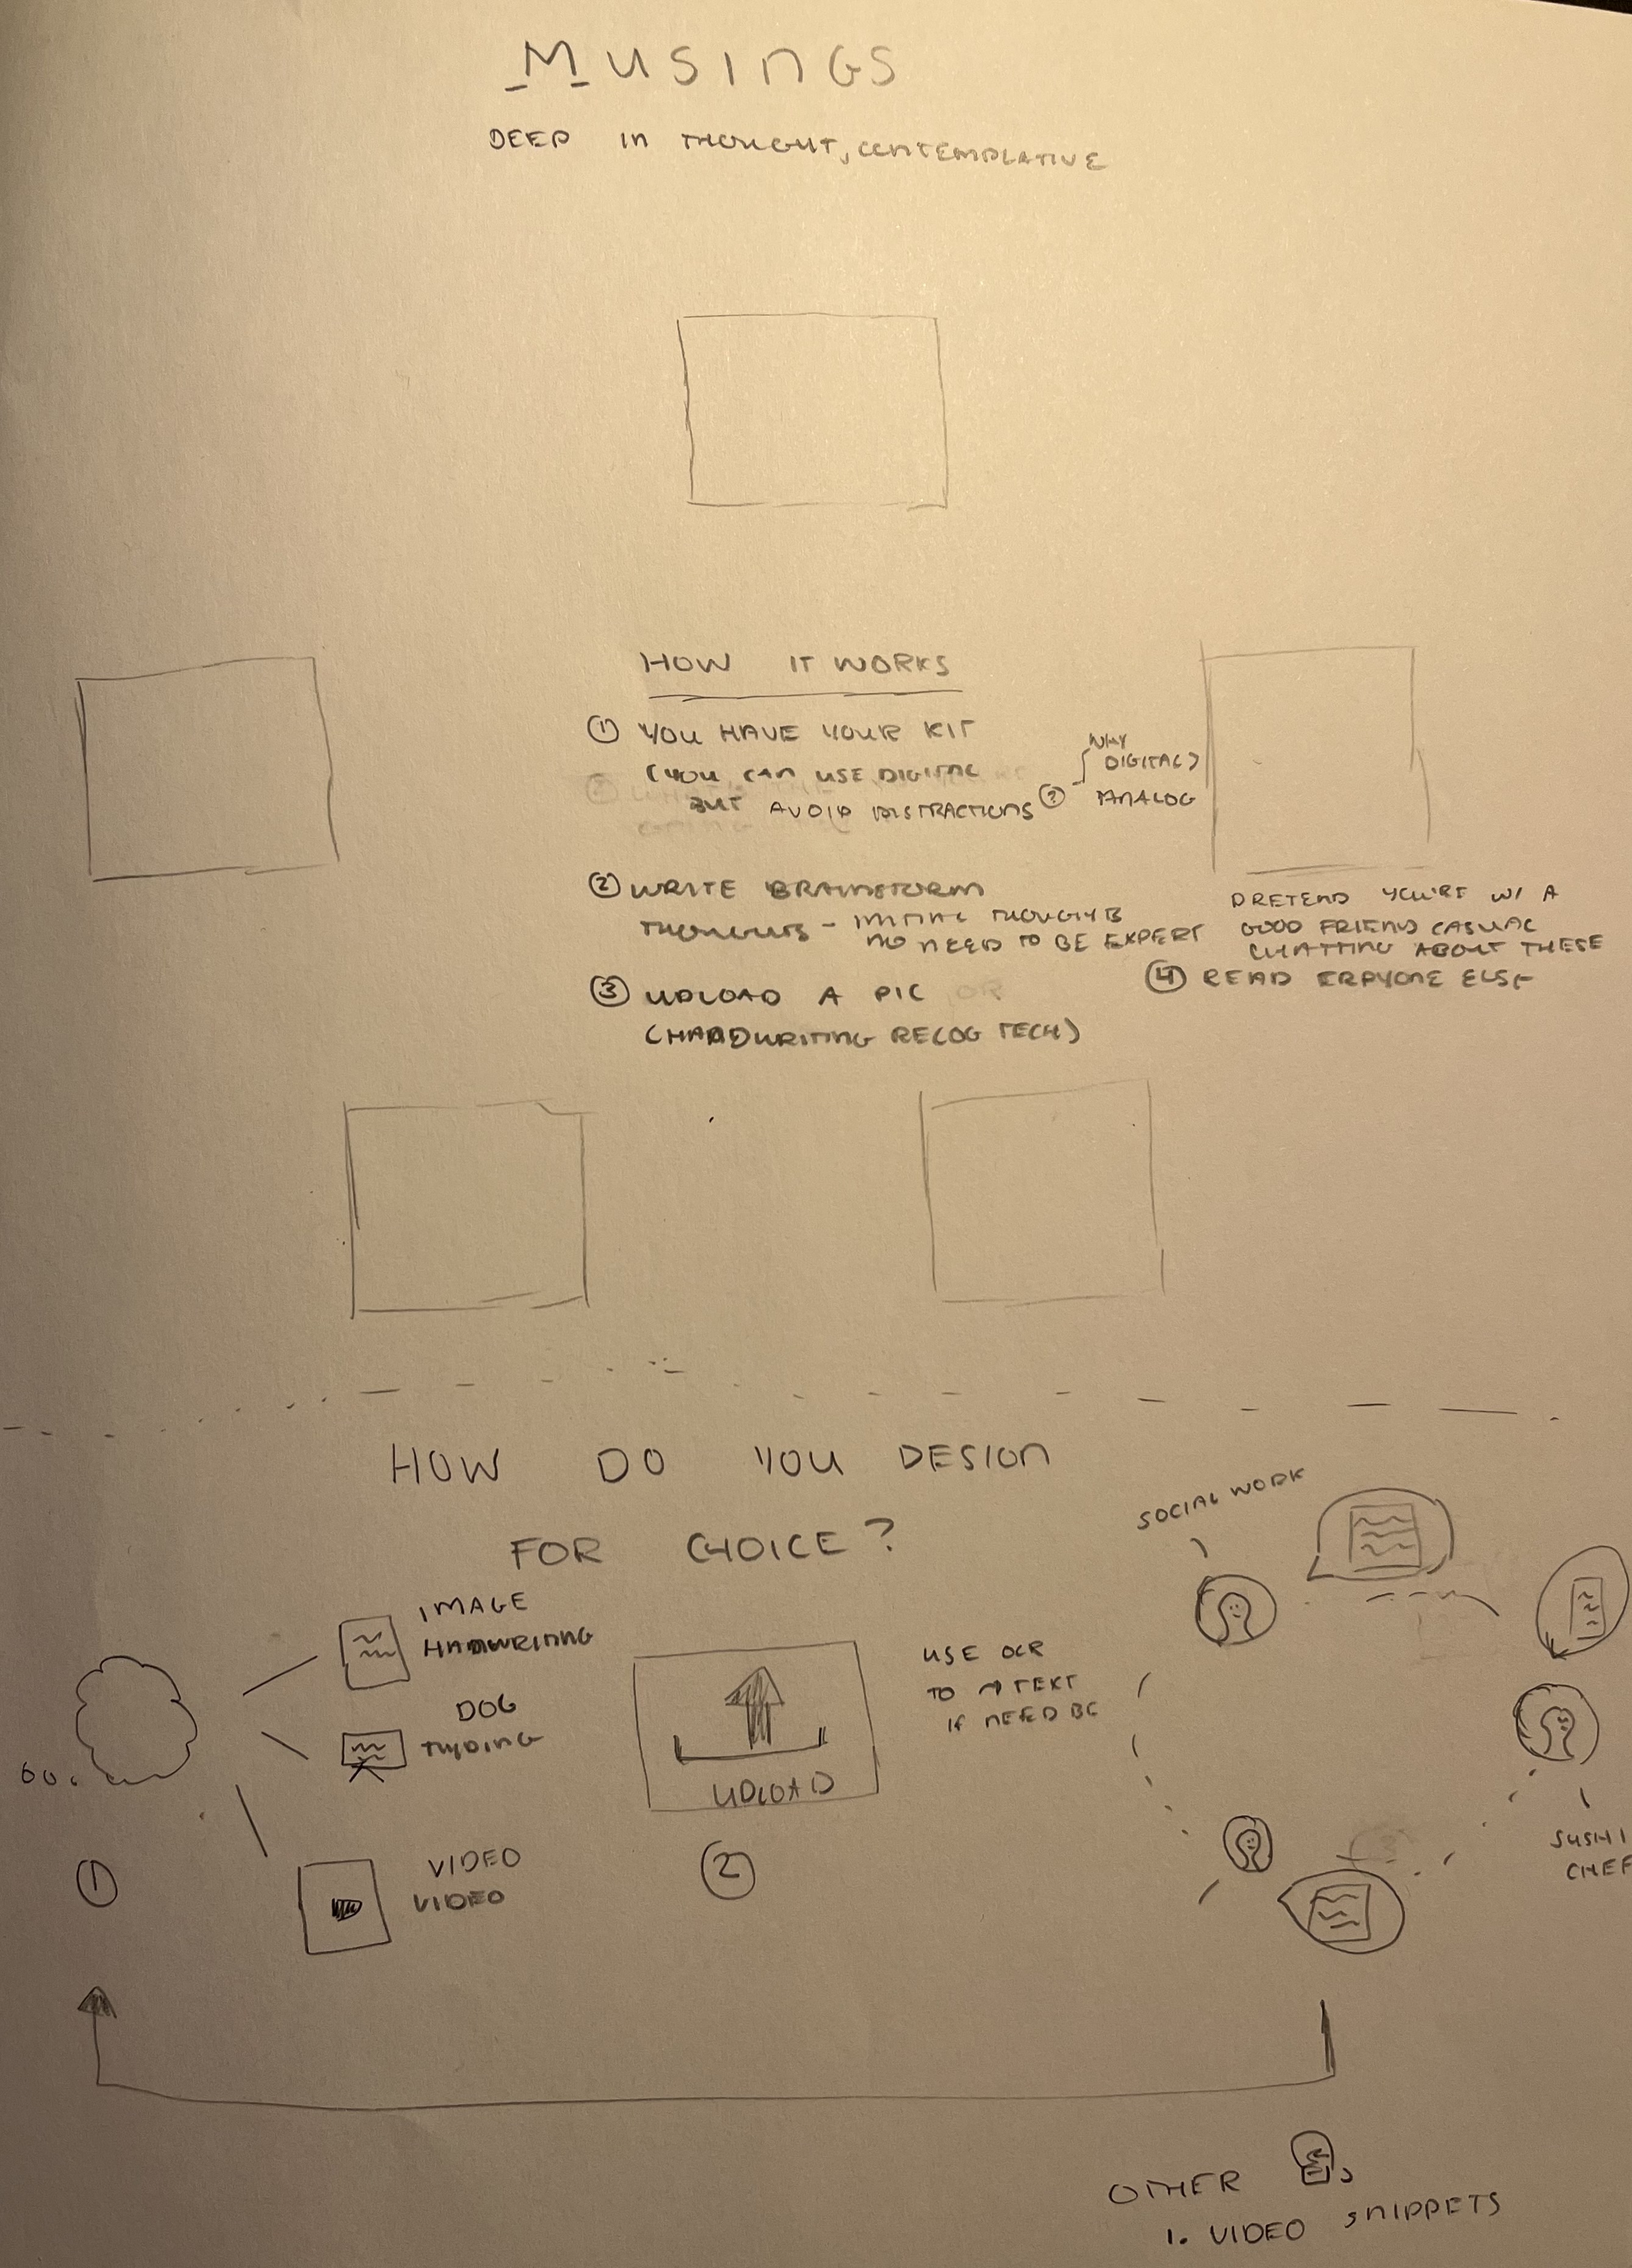 MUSINGS
DEEP IN THOUGHT, CONTEMPLATIVE
HOW IT WORKS
① YOU HAVE YOUR KIT
(YOU CAN USE DIGITAL
BUT AVOID DISTRACTIONS
? WHY
DIGITAL)
ANALOG
② WRITE BRAINSTORM
THOUGHTS - INITIAL THOUGHTS
NO NEED TO BE EXPERT
PRETEND YOU'RE W/ A
GOOD FRIEND CASUAL
CHATTING ABOUT THESE
③ UPLOAD A PIC OR
(HANDWRITING RECOG TECH)
④ READ ERPYONE ELSE
HOW DO YOU DESIGN
FOR CHOICE?
IMAGE
HANDWRITING
DOG
TYPING
VIDEO
VIDEO
①
UPLOAD
②
USE OCR
TO → TEXT
IF NEED BE
SOCIAL WORK
SUSHI
CHEF
OTHER
1. VIDEO SNIPPETS